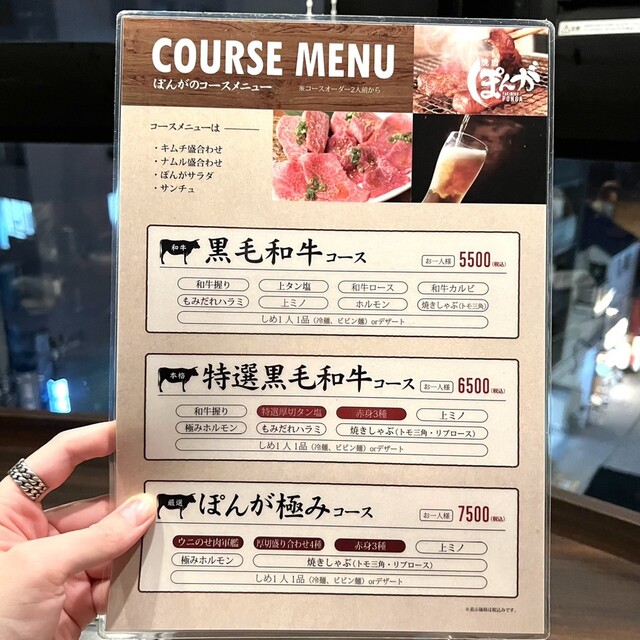 COURSE MENU
ぽんがのコースメニュー
※コースオーダー2人前から
焼肉
ぽんが
YAKINIKU
PONGA
コースメニューは
・キムチ盛合わせ
・ナムル盛合わせ
・ぽんがサラダ
・サンチュ
和牛 黒毛和牛コース お一人様 5500(税込)
和牛握り 上タン塩 和牛ロース 和牛カルビ
もみだれハラミ 上ミノ ホルモン 焼きしゃぶ(トモ三角)
しめ1人1品(冷麺、ビビン麺)orデザート
本格 特選黒毛和牛コース お一人様 6500(税込)
和牛握り 特選厚切タン塩 赤身3種 上ミノ
極みホルモン もみだれハラミ 焼きしゃぶ(トモ三角・リブロース)
しめ1人1品(冷麺、ビビン麺)orデザート
厳選 ぽんが極みコース お一人様 7500(税込)
ウニのせ肉軍艦 厚切盛り合わせ4種 赤身3種 上ミノ
極みホルモン 焼きしゃぶ(トモ三角・リブロース)
しめ1人1品(冷麺、ビビン麺)orデザート
※表示価格は税込みです。